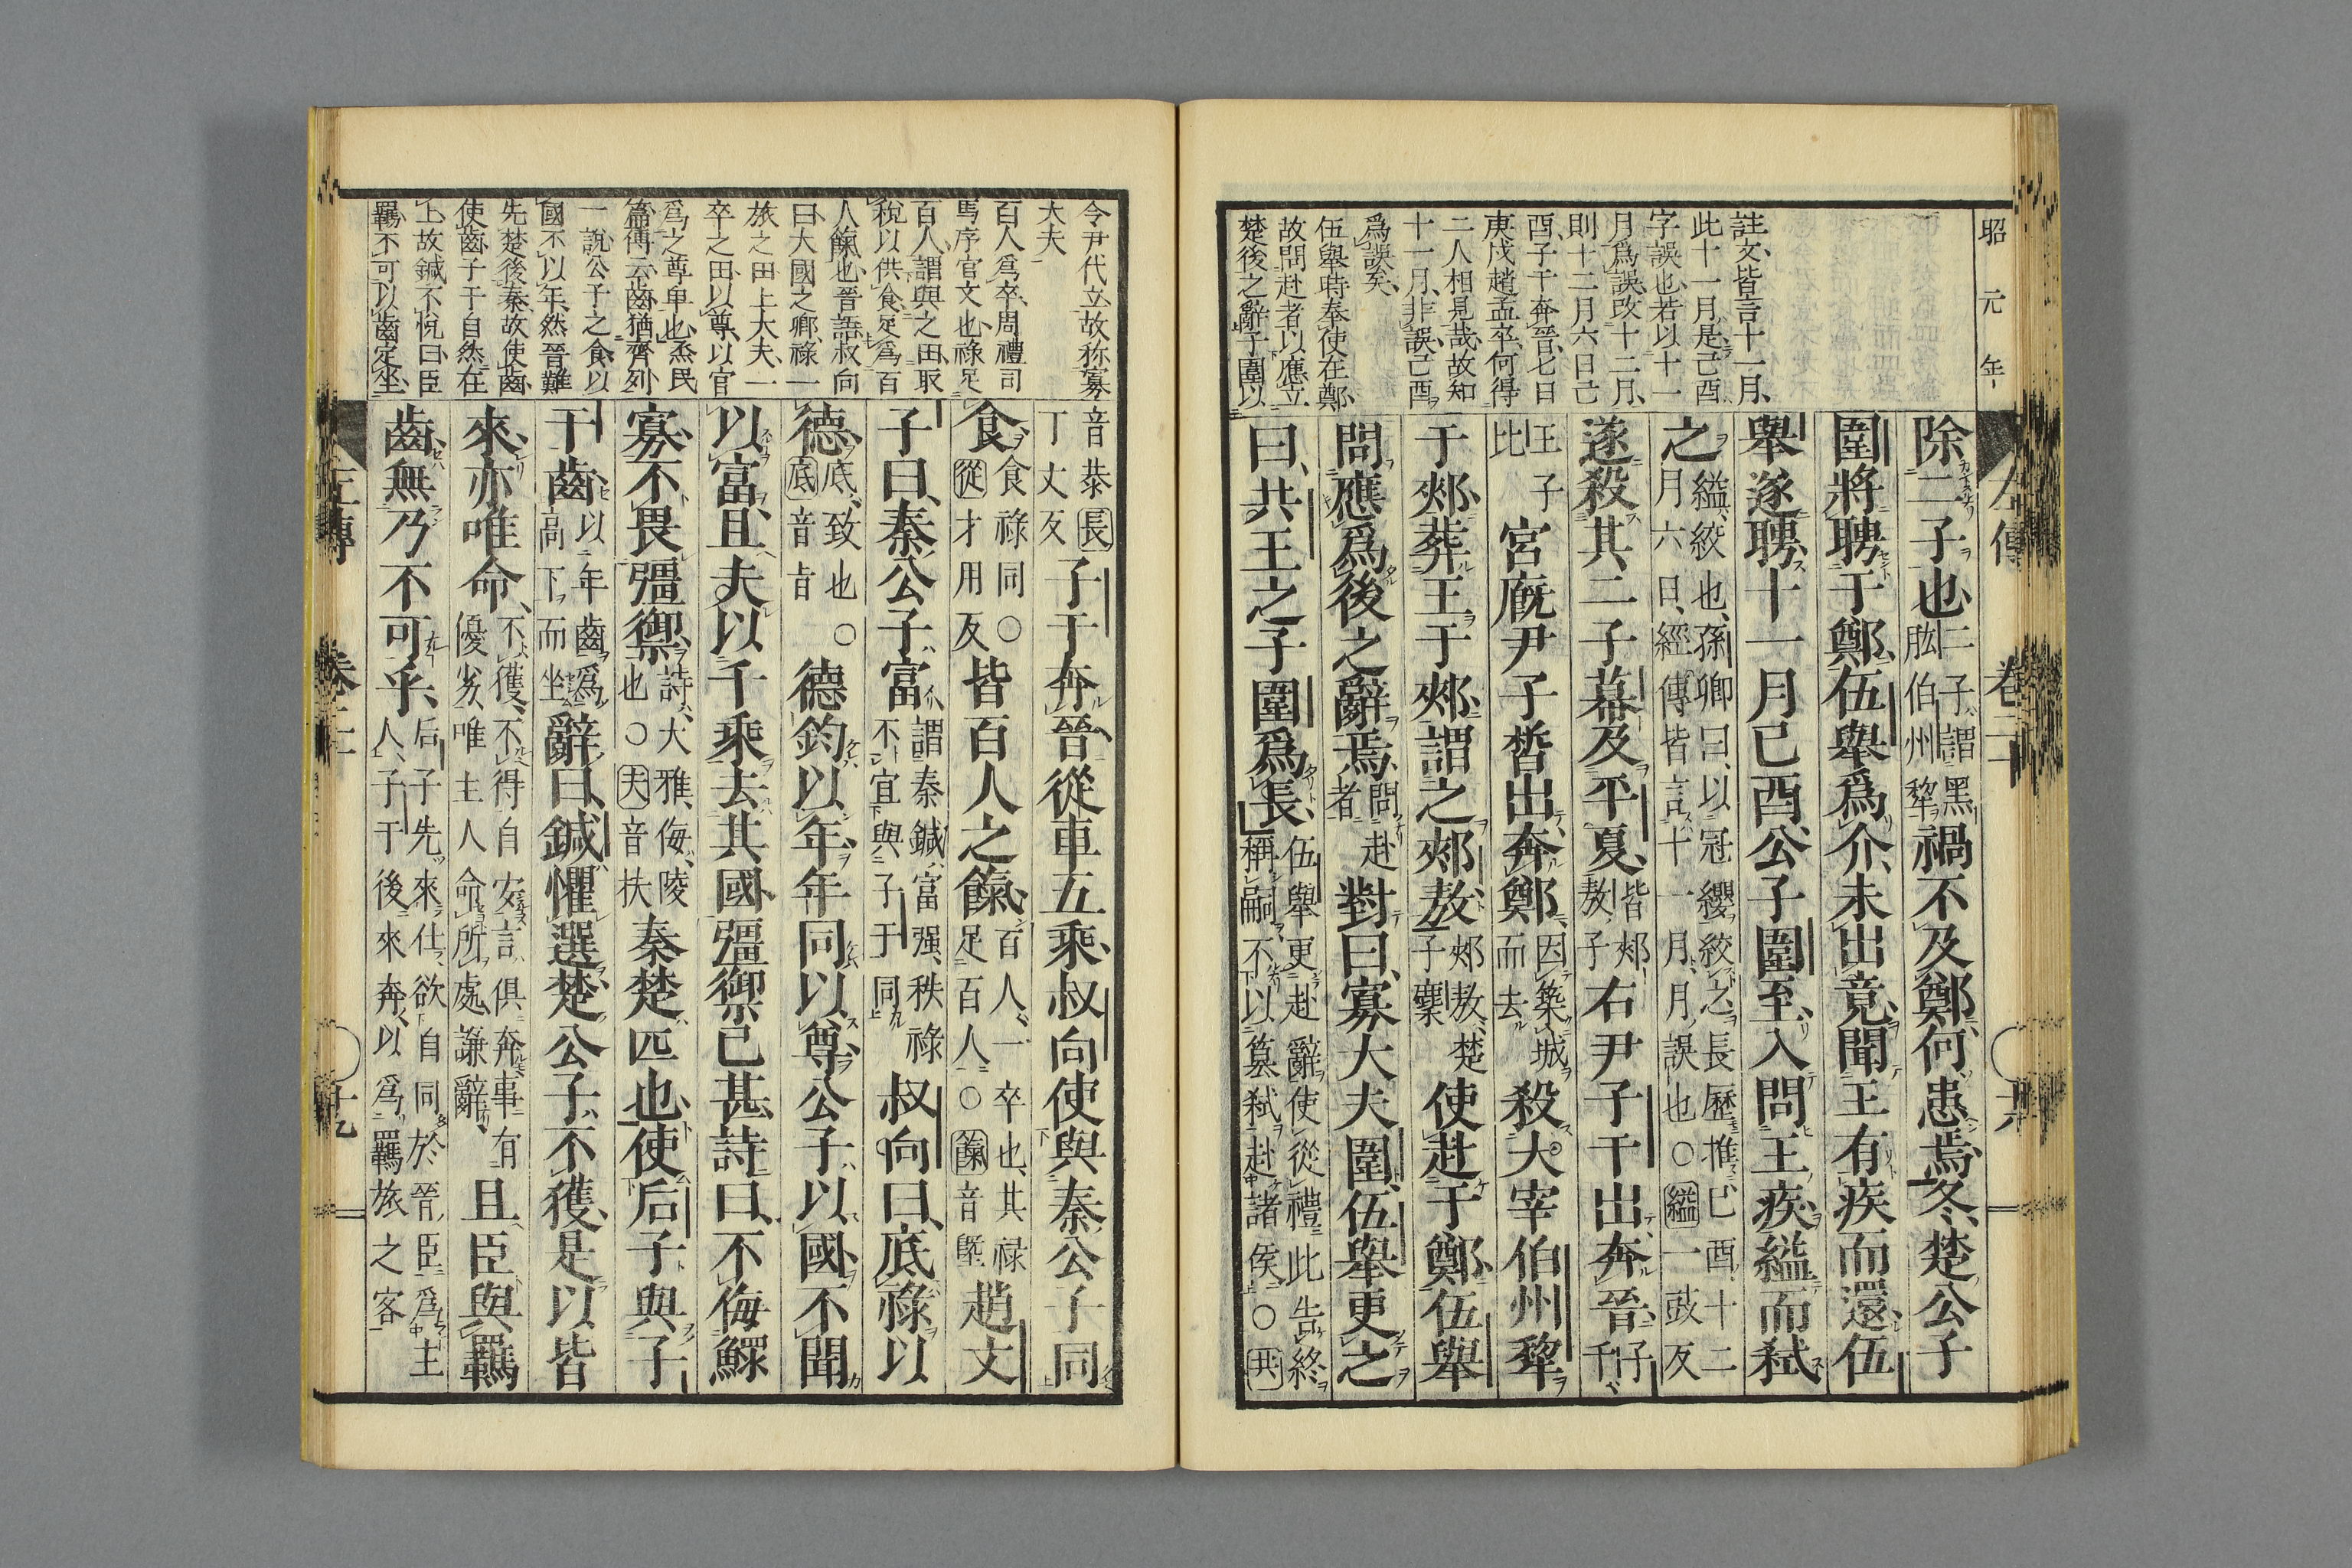 昭元年
註文皆言十一月
此十一月是己酉
字誤也若以十一
月爲誤改十二月
則十二月六日己
酉子干奔晉七日
庚戌趙孟卒何得
二人相見哉故知
十一月非誤己酉
爲誤矣
伍舉時奉使在鄭
故問赴者以應立
楚後之辭子圍以
左傳 卷二十
除二子也二子謂黑肱伯州犂禍不及鄭何患焉冬楚公子
圍將聘于鄭伍舉爲介未出竟聞王有疾而還伍
舉遂聘十一月己酉公子圍至入問王疾縊而弒
之縊絞也孫卿曰以冠纓絞之長歷推己酉十二月六日經傳皆言十一月月誤也○縊一豉反
遂殺其二子幕及平夏皆郟敖子右尹子干出奔晉子干
王子比宮廐尹子皙出奔鄭因築城而去殺大宰伯州犂
于郟葬王于郟謂之郟敖郟敖楚子麇使赴于鄭伍舉
問應爲後之辭焉問赴者對曰寡大夫圍伍舉更之
曰共王之子圍爲長伍舉更赴辭使從禮此告終稱嗣不以簒弒赴諸侯○共
令尹代立故称寡
大夫
百人爲卒周禮司
馬序官文也祿足
百人謂與之田取
稅以供食足爲百
人餼也晉語叔向
曰大國之卿祿一
旅之田上大夫一
卒之田以尊以官
爲之尊卑也烝民
篇傳云齒猶齊列
一說公子之食以
國不以年然晉難
先楚後秦故使齒
使齒子干自然在
上故鍼不悅曰臣
羈不可以齒定坐
音恭長丁丈反子干奔晉從車五乘叔向使與秦公子同
食食祿同○從才用反皆百人之餼百人一卒也其祿足百人○餼音墍趙文
子曰秦公子富謂秦鍼富强秩祿不宜與子干同叔向曰底祿以
德底致也○底音旨德鈞以年年同以尊公子以國不聞
以富且夫以千乘去其國彊禦已甚詩曰不侮鰥
寡不畏彊禦詩大雅侮陵也○夫音扶秦楚匹也使后子與子
干齒以年齒爲高下而坐辭曰鍼懼選楚公子不獲是以皆
來亦唯命不獲不得自安言俱奔事有優劣唯主人命所處謙辭且臣與羈
齒無乃不可乎后子先來仕欲自同於晉臣爲主人子干後來奔以爲羈旅之客